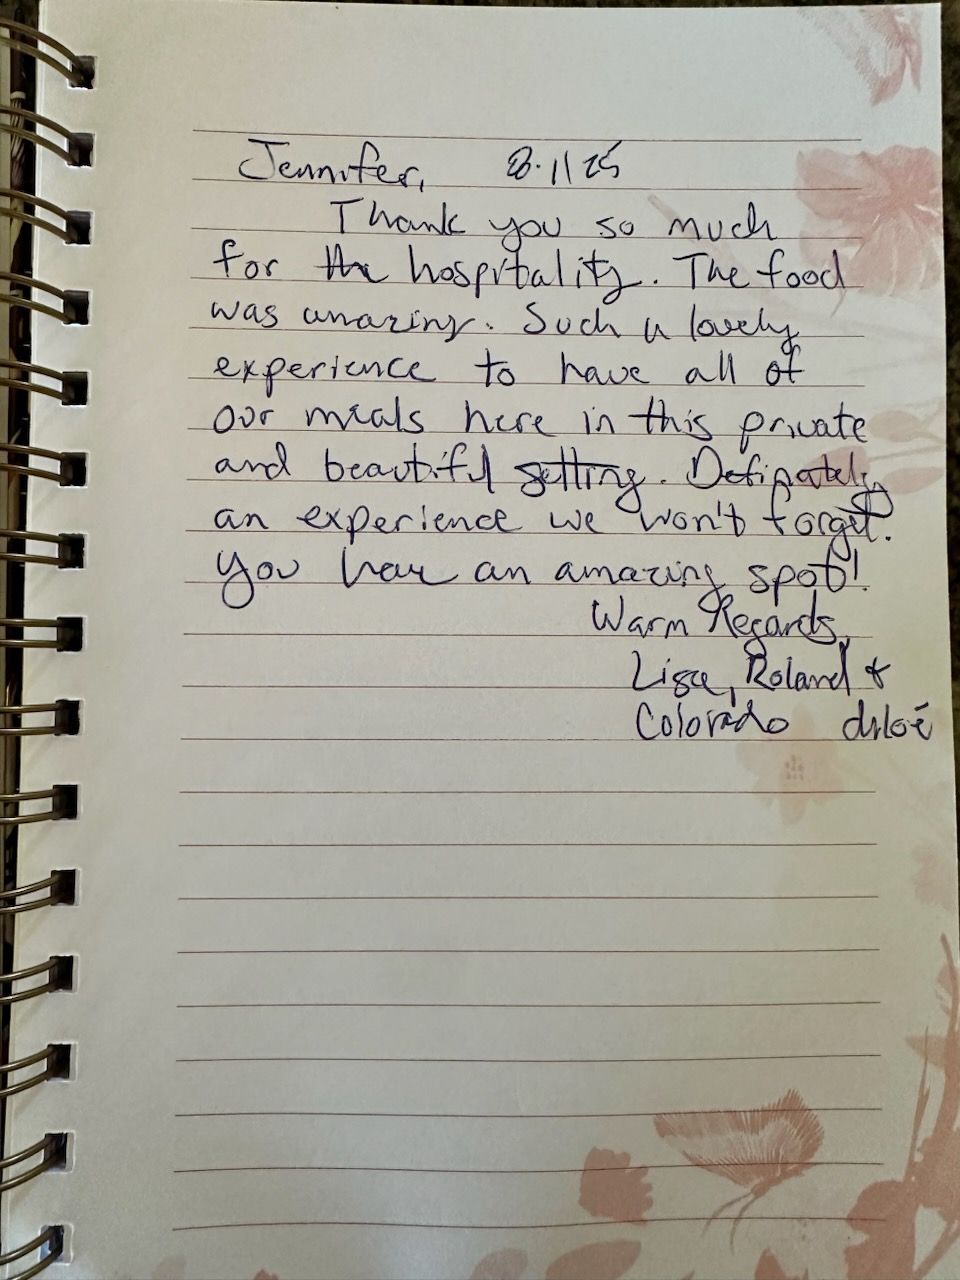 Jennifer, 8·1/25
Thank you so much
for the hospitality. The food
was amazing. Such a lovely
experience to have all of
our meals here in this private
and beautiful setting. Definately
an experience we won't forget.
You have an amazing spot!
Warm Regards,
Lisa, Roland &
Colorado Chloé